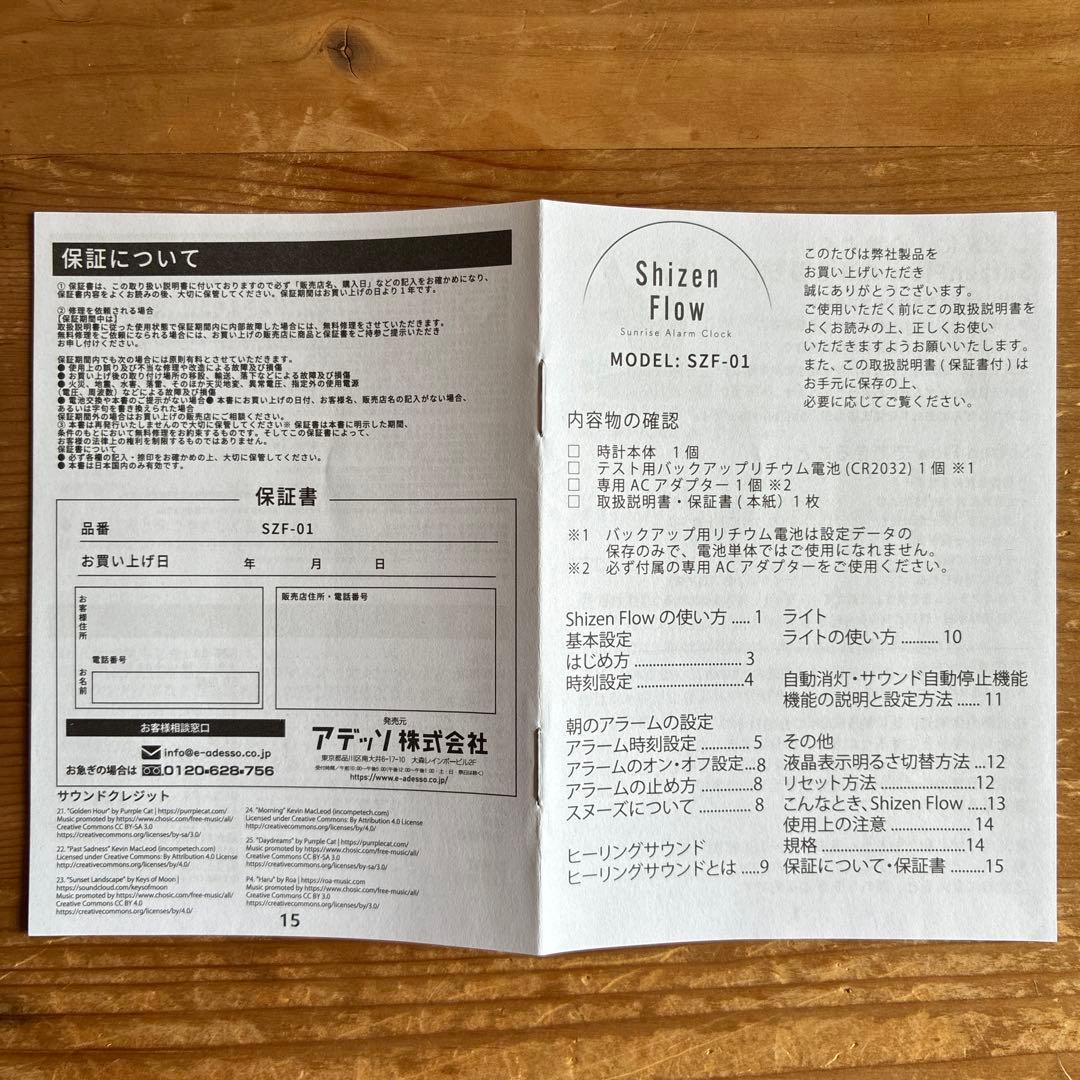 保証について
① 保証書は、この取り扱い説明書に付いておりますので必ず「販売店名、購入日」などの記入をお確かめになり、
保証書内容をよくお読みの後、大切に保管してください。保証期間はお買い上げの日より1年です。
② 修理を依頼される場合
【保証期間中は】
取扱説明書に従った使用状態で保証期間内に内部故障した場合には、無料修理をさせていただきます。
無料修理をご依頼になられる場合には、お買い上げの販売店に商品と保証書をご持参ご提示いただき
お申し付けください。
保証期間内でも次の場合には原則有料とさせていただきます。
● 使用上の誤り及び不当な修理や改造による故障及び損傷
● お買い上げ後の取り付け場所の移設、輸送、落下などによる故障及び損傷
● 火災、地震、水害、落雷、そのほか天災地変、異常電圧、指定外の使用電源
(電圧、周波数)などによる故障及び損傷
● 電池交換や本書のご提示がない場合● 本書にお買い上げの日付、お客様名、販売店名の記入がない場合、
あるいは字句を書き換えられた場合
保証期間外の場合はお買い上げの販売店にご相談ください。
③ 本書は再発行いたしませんので大切に保管してください※ 保証書は本書に明示した期間、
条件のもとにおいて無料修理をお約束するものです。そしてこの保証書によって、
お客様の法律上の権利を制限するものではありません。
保証書について
● 必ず各欄の記入・捺印をお確かめの上、大切に保管してください。
● 本書は日本国内のみ有効です。
保証書
品番 SZF-01
お買い上げ日 年 月 日
お客様住所
電話番号
お名前
販売店住所・電話番号
お客様相談窓口
info@e-adesso.co.jp
お急ぎの場合は 0120-628-756
発売元
アデッソ株式会社
東京都品川区南大井6-17-10 大森レインボービル2F
受付時間/午前10:00~午後5:00(午後12:00~午後1:00・土・日・祭日は除く)
https://www.e-adesso.co.jp/
サウンドクレジット
21. "Golden Hour" by Purple Cat | https://purplecat.com/
Music promoted by https://www.chosic.com/free-music/all/
Creative Commons CC BY-SA 3.0
https://creativecommons.org/licenses/by-sa/3.0/
22. "Past Sadness" Kevin MacLeod (incompetech.com)
Licensed under Creative Commons: By Attribution 4.0 License
http://creativecommons.org/licenses/by/4.0/
23. "Sunset Landscape" by Keys of Moon |
https://soundcloud.com/keysofmoon
Music promoted by https://www.chosic.com/free-music/all/
Creative Commons CC BY 4.0
https://creativecommons.org/licenses/by/4.0/
24. "Morning" Kevin MacLeod (incompetech.com)
Licensed under Creative Commons: By Attribution 4.0 License
http://creativecommons.org/licenses/by/4.0/
25. "Daydreams" by Purple Cat | https://purplecat.com/
Music promoted by https://www.chosic.com/free-music/all/
Creative Commons CC BY-SA 3.0
https://creativecommons.org/licenses/by-sa/3.0/
P4. "Haru" by Roa | https://roa-music.com
Music promoted by https://www.chosic.com/free-music/all/
Creative Commons CC BY 3.0
https://creativecommons.org/licenses/by/3.0/
15
Shizen
Flow
Sunrise Alarm Clock
MODEL: SZF-01
このたびは弊社製品を
お買い上げいただき
誠にありがとうございます。
ご使用いただく前にこの取扱説明書を
よくお読みの上、正しくお使い
いただきますようお願いいたします。
また、この取扱説明書(保証書付)は
お手元に保存の上、
必要に応じてご覧ください。
内容物の確認
□ 時計本体 1個
□ テスト用バックアップリチウム電池(CR2032)1個 ※1
□ 専用ACアダプター1個 ※2
□ 取扱説明書・保証書(本紙)1枚
※1 バックアップ用リチウム電池は設定データの
保存のみで、電池単体ではご使用になれません。
※2 必ず付属の専用ACアダプターをご使用ください。
Shizen Flow の使い方 ..... 1
基本設定
はじめ方 .......................... 3
時刻設定 ..........................4
朝のアラームの設定
アラーム時刻設定 ............. 5
アラームのオン・オフ設定...8
アラームの止め方 ..............8
スヌーズについて .............. 8
ヒーリングサウンド
ヒーリングサウンドとは .....9
ライト
ライトの使い方 .......... 10
自動消灯・サウンド自動停止機能
機能の説明と設定方法 ...... 11
その他
液晶表示明るさ切替方法 ...12
リセット方法 ..................... 12
こんなとき、Shizen Flow .....13
使用上の注意 ..................... 14
規格 ...................................14
保証について・保証書 .........15